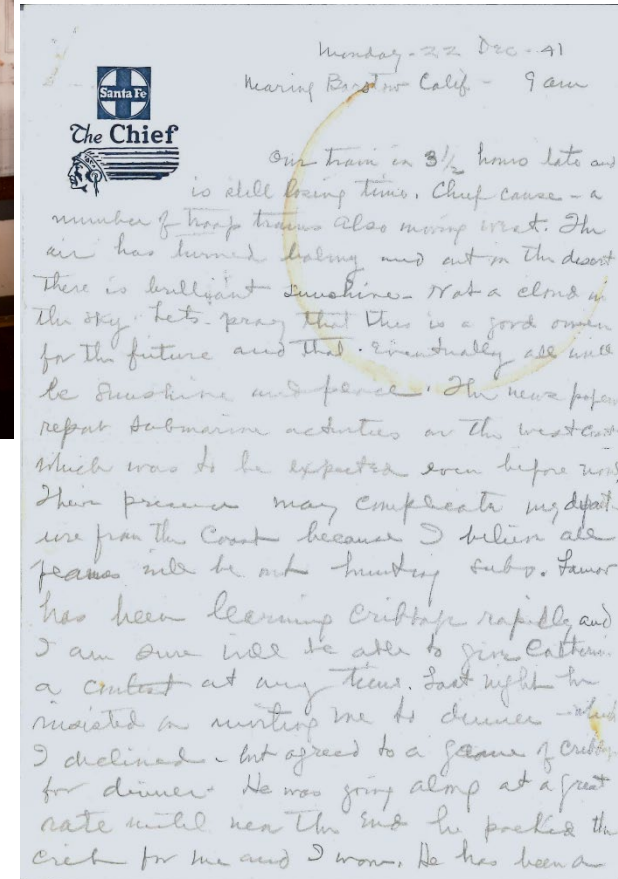 Monday - 22 Dec - 41
Nearing Barstow Calif - 9 am
Santa Fe
The Chief
Our train is 3 1/2 hours late and
is still losing time. Chief cause - a
number of troop trains also moving west. The
air has turned balmy and out in the desert
there is brilliant sunshine - Not a cloud in
the sky. Lets pray that this is a good omen
for the future and that eventually all will
be sunshine and peace. The news papers
report submarine activities on the west coast
which was to be expected even before now.
Their presence may complicate my depart-
ure from the Coast because I believe all
planes will be out hunting subs. Lamar
has been learning cribbage rapidly and
I am sure will be able to give Catherine
a contest at any time. Last night he
insisted on inviting me to dinner - which
I declined - but agreed to a game of cribbage
for dinner. He was going along at a great
rate until near the end he packed the
crib for me and I won. He has been an